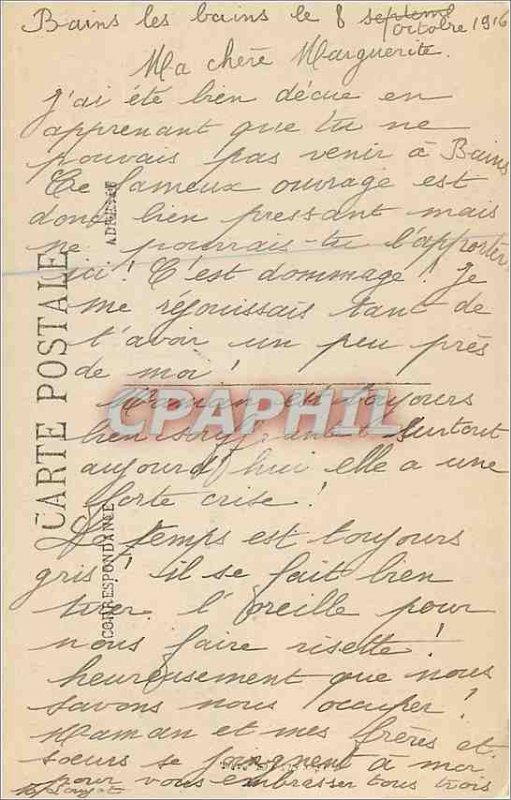 Bains les bains le 8 septemb
octobre 1916
Ma chère Marguerite.
J'ai été bien décue en
apprenant que tu ne
pouvais pas venir à Bains
Ce fameux ouvrage est
donc bien pressant mais
ne pourrais-tu l'apporter
ici! C'est dommage! Je
me réjouissais tant de
t'avoir un peu près
de moi!
Maman est toujours
bien surtout
aujourd'hui elle a une
forte crise!
Le temps est toujours
gris! il se fait bien
tirer l'oreille pour
nous faire risette!
heureusement que nous
savons nous occuper!
Maman et mes frères et
sœurs se joignent à moi
pour vous embrasser tous trois
CARTE POSTALE
CORRESPONDANCE
ADRESSE
CPAPHIL